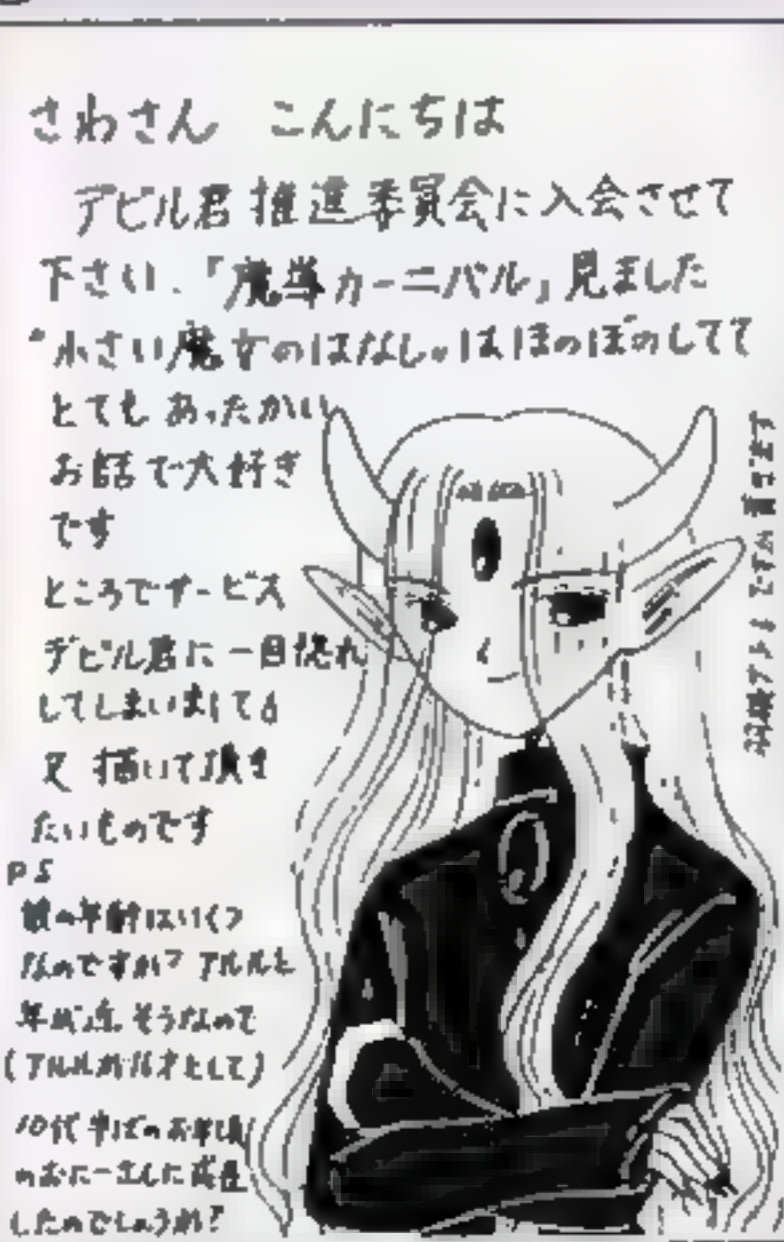 さわさん こんにちは
デビル君推進委員会に入会させて
下さい.「魔導カーニバル」見ました
“小さい魔女のはなし〟はほのぼのしてて
とてもあったかい
お話で大好き
です
ところでサービス
デビル君に一目惚れ
してしまいまして♂
又 描いて頂き
たいものです
PS
彼の年齢はいくつ
なのですか? アルルと
年が近そうなので
(アルルが16才として)
10代半ばのお年頃
のおにーさんに成長
したのでしょうか?
ですが喜びます